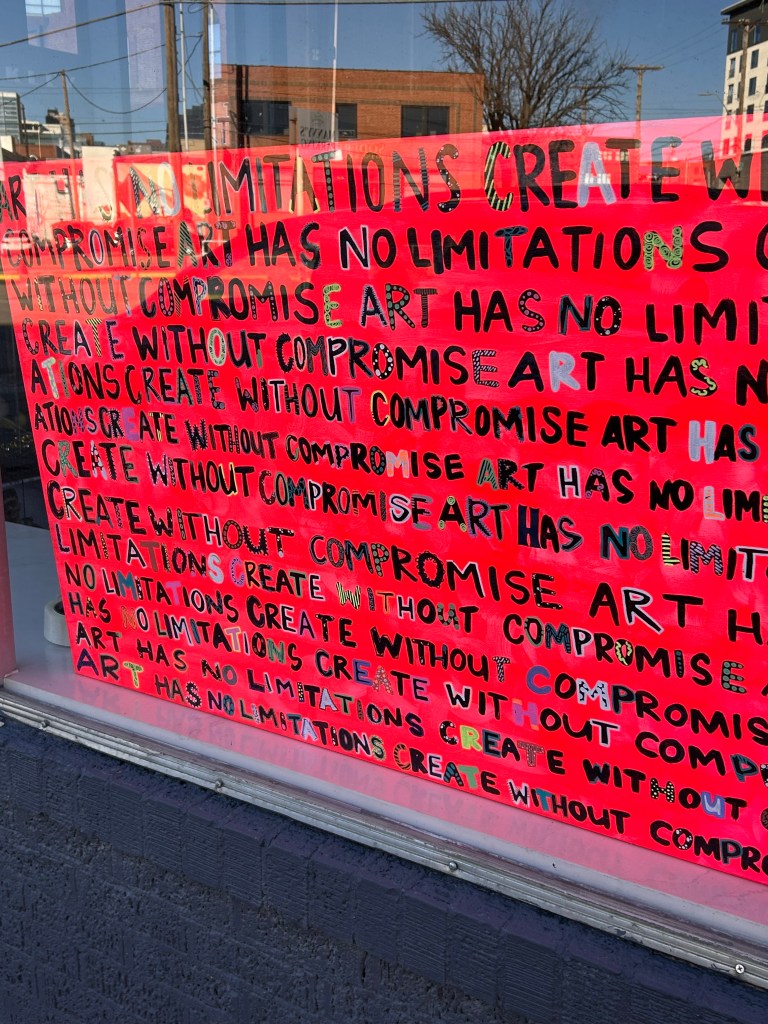 ART HAS NO LIMITATIONS CREATE WI
COMPROMISE ART HAS NO LIMITATIONS C
WITHOUT COMPROMISE ART HAS NO LIMI
CREATE WITHOUT COMPROMISE ART HAS N
ATIONS CREATE WITHOUT COMPROMISE ART HAS
ATIONS CREATE WITHOUT COMPROMISE ART HAS NO LIMI
CREATE WITHOUT COMPROMISE ART HAS NO LIMIT
CREATE WITHOUT COMPROMISE ART H
LIMITATIONS CREATE WITHOUT COMPROMISE
NO LIMITATIONS CREATE WITHOUT COMPROMIS
HAS NO LIMITATIONS CREATE WITHOUT COMP
ART HAS NO LIMITATIONS CREATE WITHOUT
ART HAS NO LIMITATIONS CREATE WITHOUT COMPRO